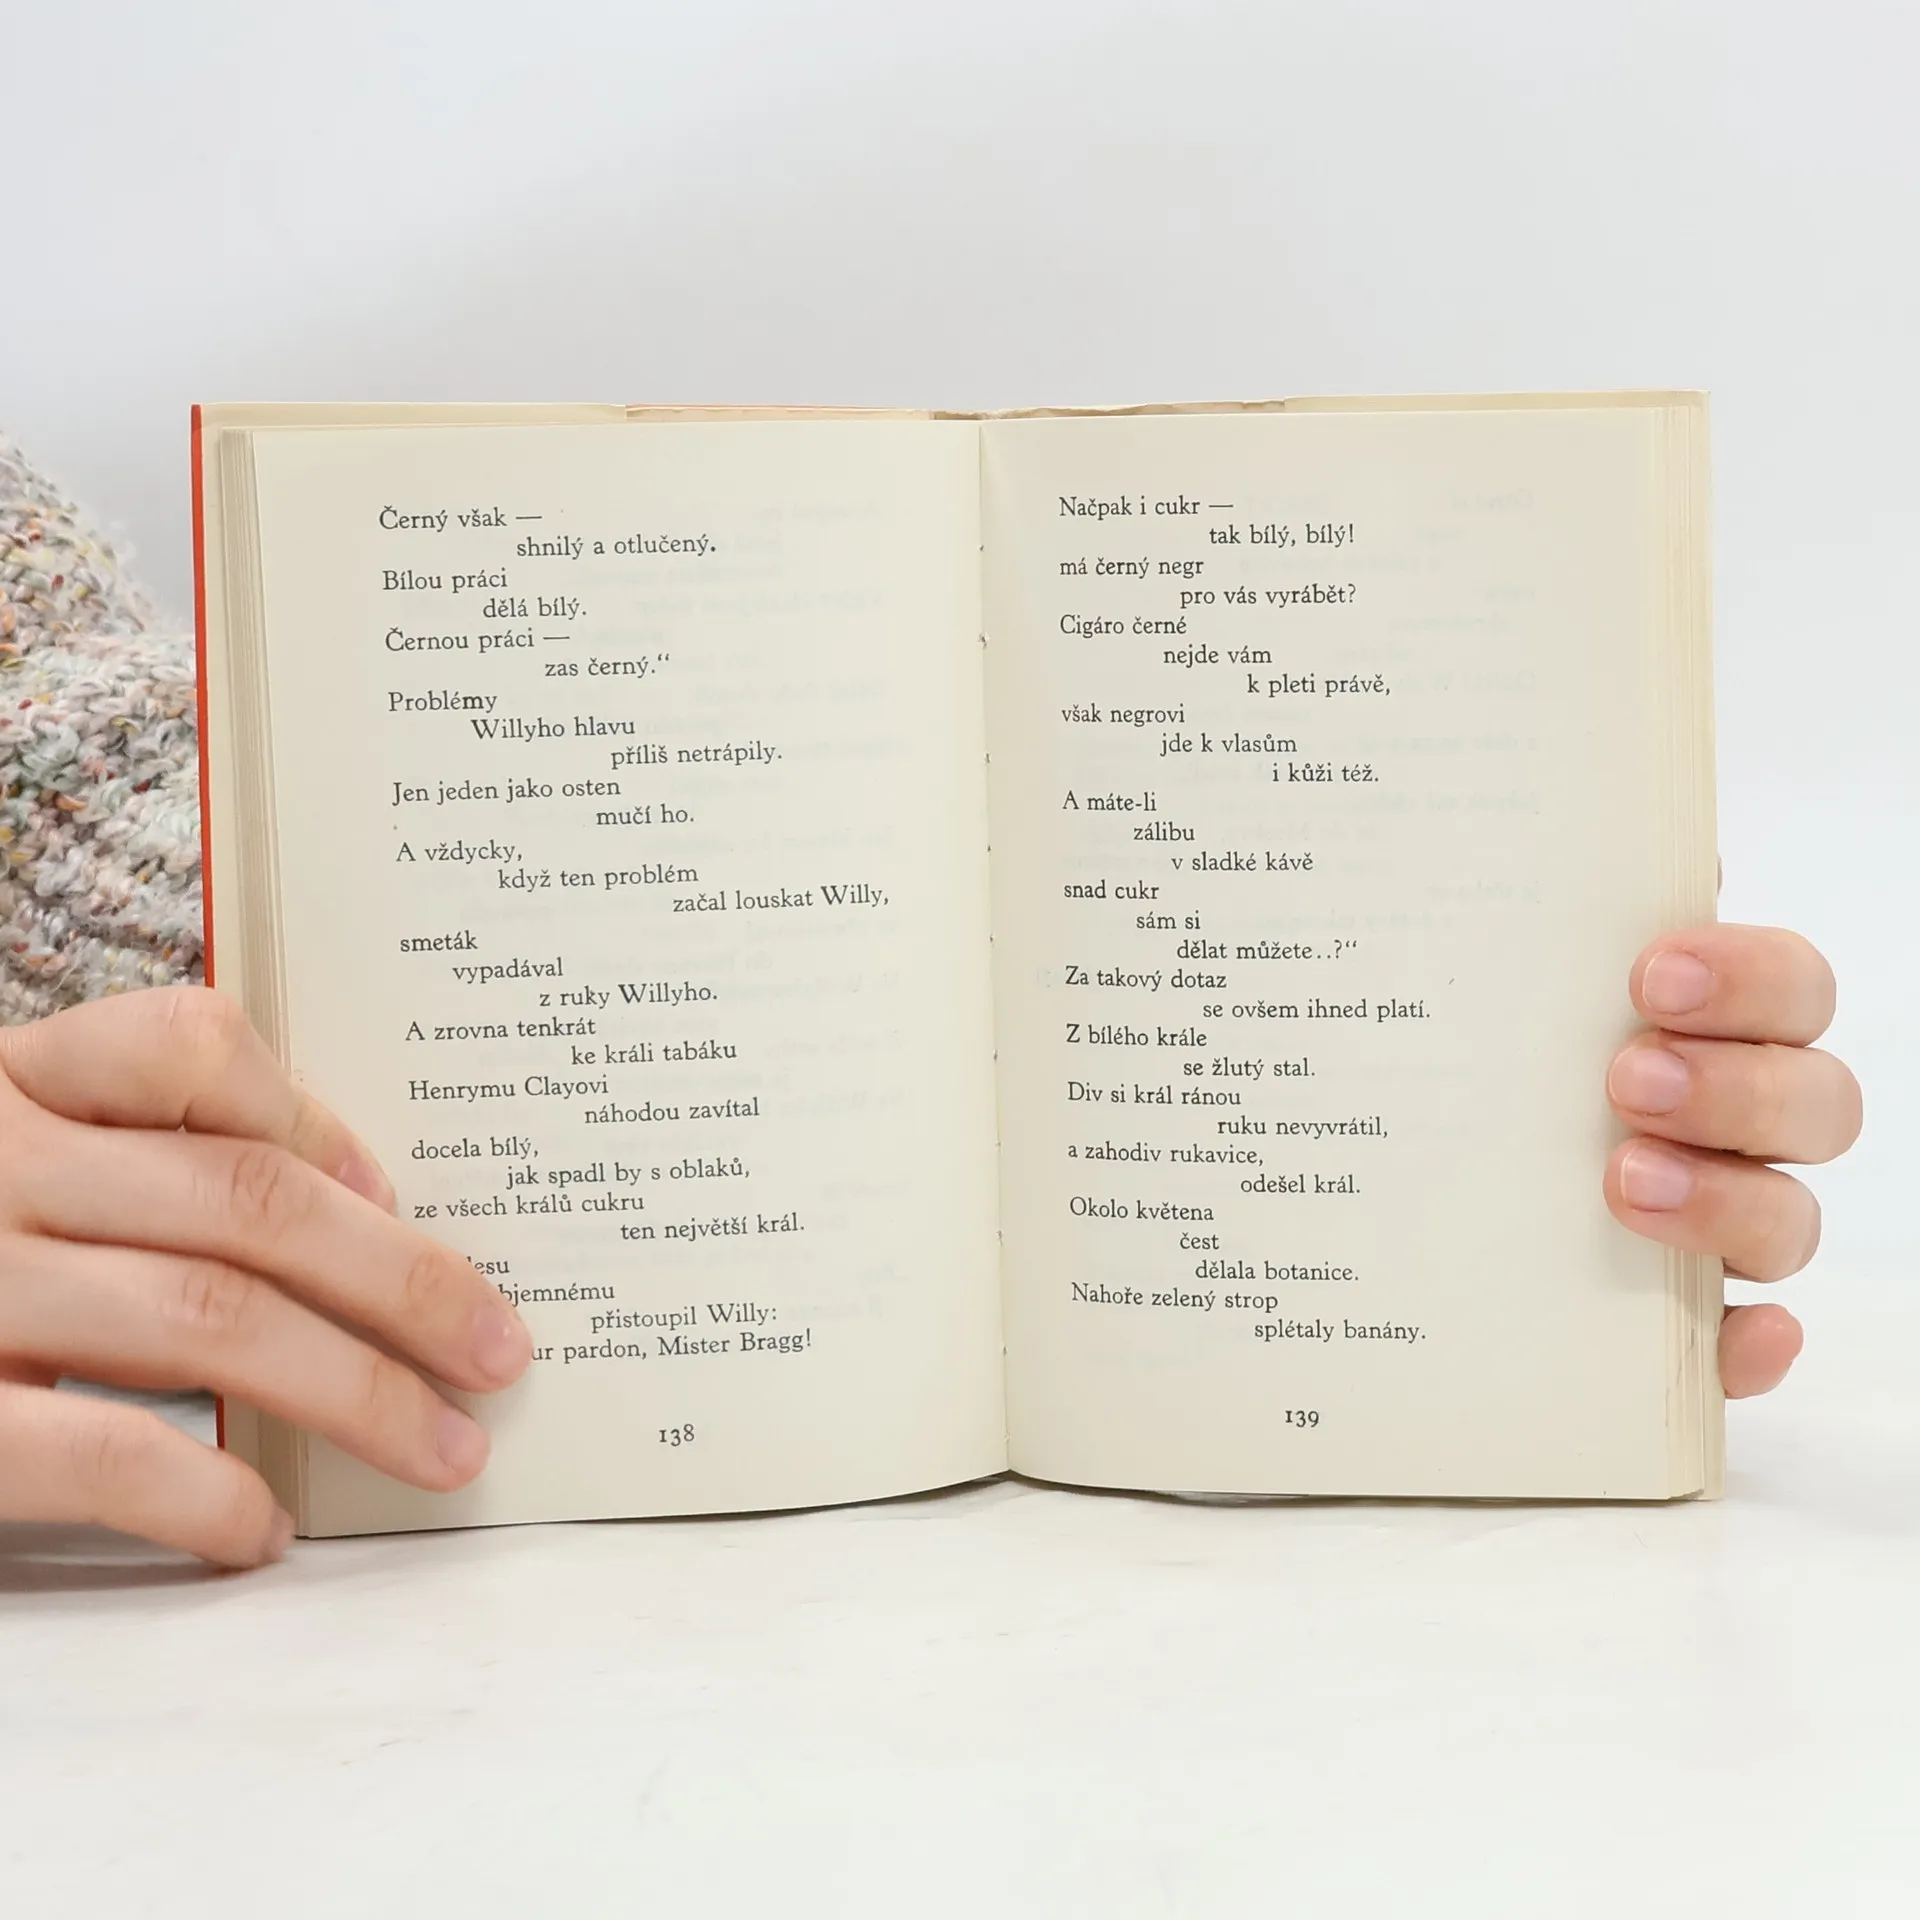 Černý však —
shnilý a otlučený.
Bílou práci
dělá bílý.
Černou práci —
zas černý.“
Problémy
Willyho hlavu
příliš netrápily.
Jen jeden jako osten
mučí ho.
A vždycky,
když ten problém
začal louskat Willy,
smeták
vypadával
z ruky Willyho.
A zrovna tenkrát
ke králi tabáku
Henrymu Clayovi
náhodou zavítal
docela bílý,
jak spadl by s oblaků,
ze všech králů cukru
ten největší král.
přistoupil Willy:
pardon, Mister Bragg!
138
Načpak i cukr —
tak bílý, bílý!
má černý negr
pro vás vyrábět?
Cigáro černé
nejde vám
k pleti právě,
však negrovi
jde k vlasům
i kůži též.
A máte-li
zálibu
v sladké kávě
snad cukr
sám si
dělat můžete..?“
Za takový dotaz
se ovšem ihned platí.
Z bílého krále
se žlutý stal.
Div si král ránou
ruku nevyvrátil,
a zahodiv rukavice,
odešel král.
Okolo květena
čest
dělala botanice.
Nahoře zelený strop
splétaly banány.
139